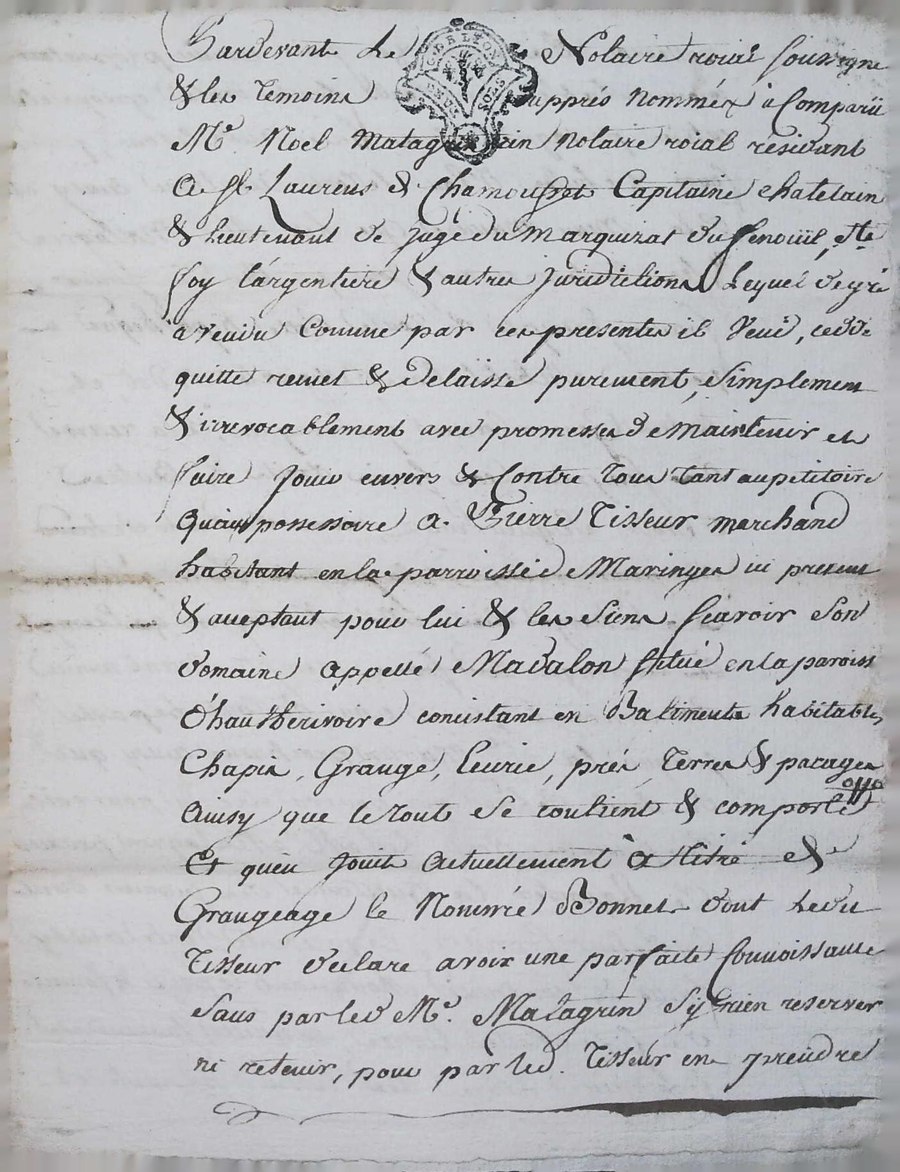 Pardevant Le Notaire roial soussigné
G. DE LYON
DEUX SOLS
& les temoins cy apprés nommés a Comparü
Me. Noel Matagrin notaire roial residant
a St. Laurens de Chamousset Capitaine chatelain
& lieutenant de juge du Marquizat du fenoüil, Ste
foy l'argentiere & autres juridictions Lequel de gré
a vendu Comme par ces presentes il Vend, cedde
quitte remet & delaisse purement, simplement
& irrevocablement avec promesse de maintenir et
faire Jouir envers & contre tous tant au petitoire
qu'au possessoire a Pierre Tisseur marchand
habitant en la parroisse de Maringes ici present
& acceptant pour lui & les siens scavoir son
domaine appellé Madalon situé en la paroiss
d'hauterivoire concistant en Batiments habitables,
Chapis, Grange, Ecurie, prés, Terres & pacages
ainsy que le tout se contient & comporte
Et qu'en Jouit actuellement à titre de
Grangeage le Nommé Bonnet dont ledit
Tisseur declare avoir une parfaite Connoissance
sans par led Me. Matagrin s'y rien reserver
ni retenir, pour par led. Tisseur en prendre